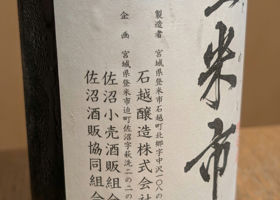 米市
製造者 宮城県登米市石越町北郷字中沢一〇八の
石越醸造株式会社
企画 宮城県登米市迫町佐沼字萩洗二の二の
佐沼小売酒販組合
佐沼酒販協同組合